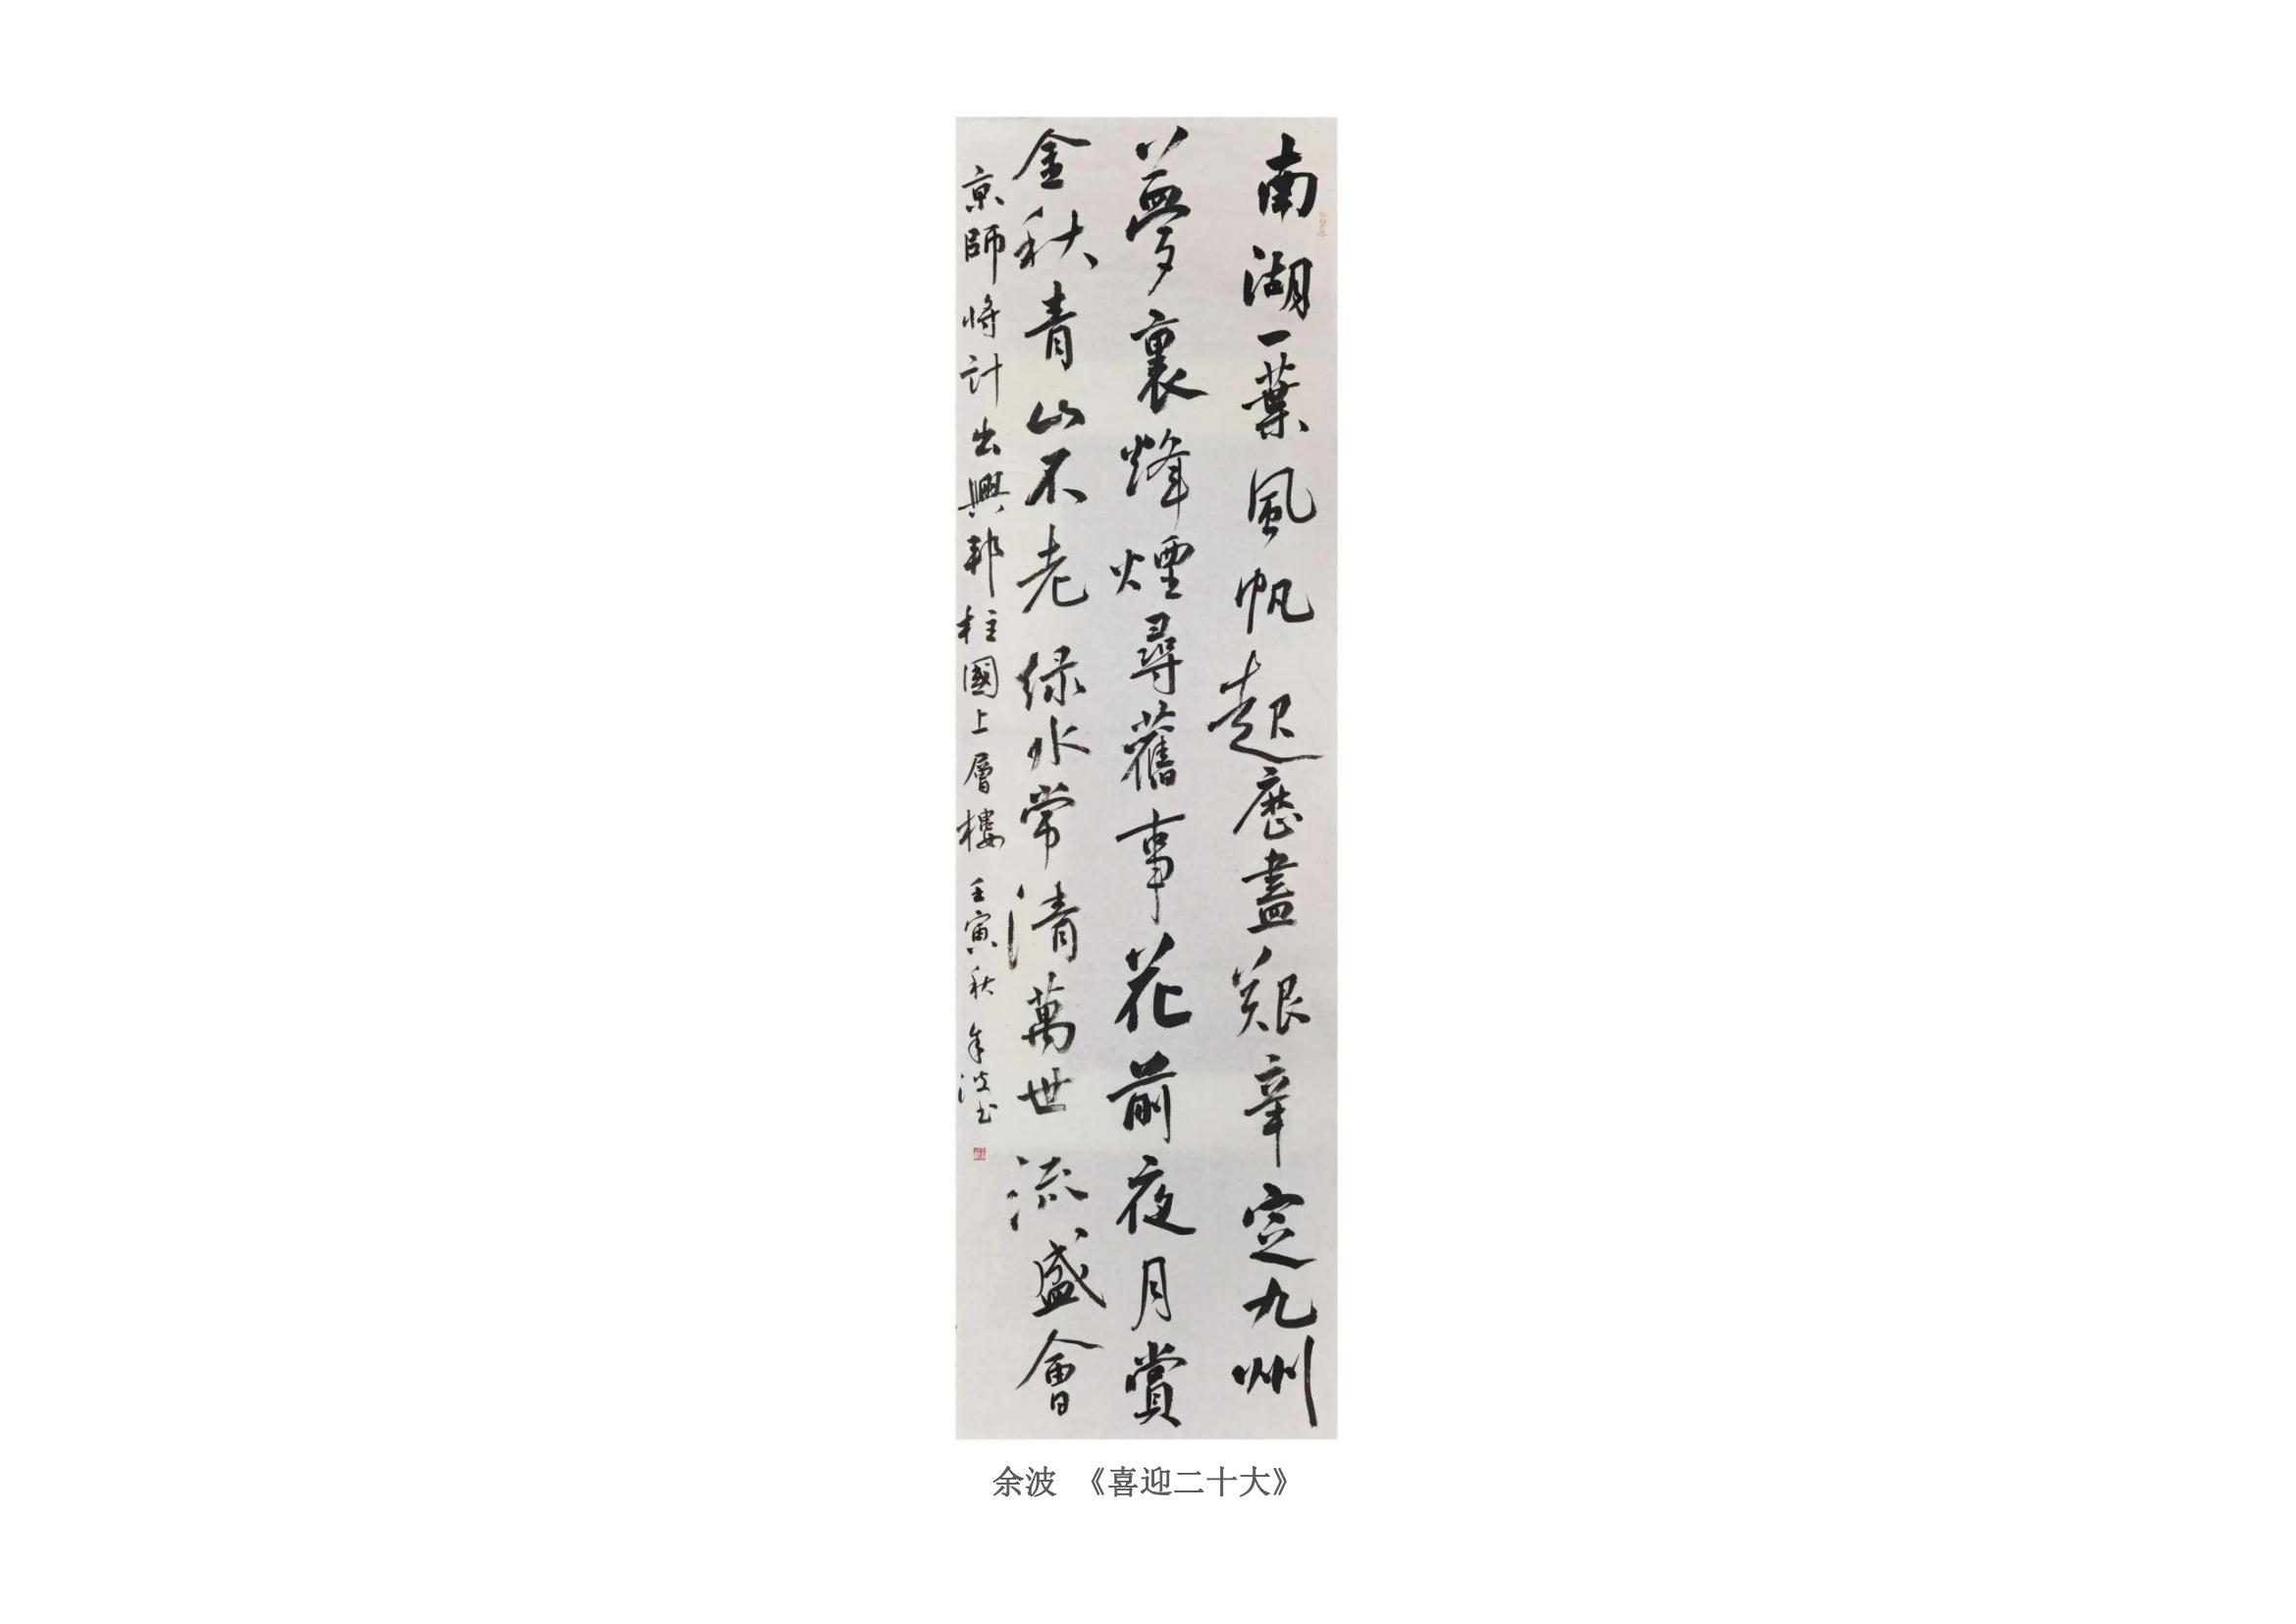 南湖一葉風帆起歷盡艱辛定九州
夢裏烽煙尋舊事花前夜月賞
金秋青山不老绿水常清萬世流盛會
京師將計出興邦柱國上層樓 壬寅秋 余波书
余波 《喜迎二十大》